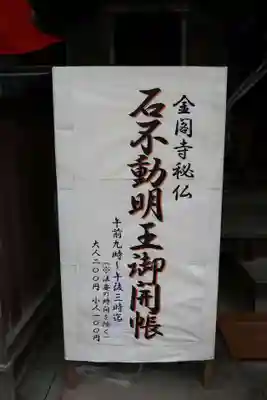 金閣寺秘仏
石不動明王御開帳
午前九時〜午後三時迄
(※法要の時間を除く)
大人二〇〇円 小人一〇〇円